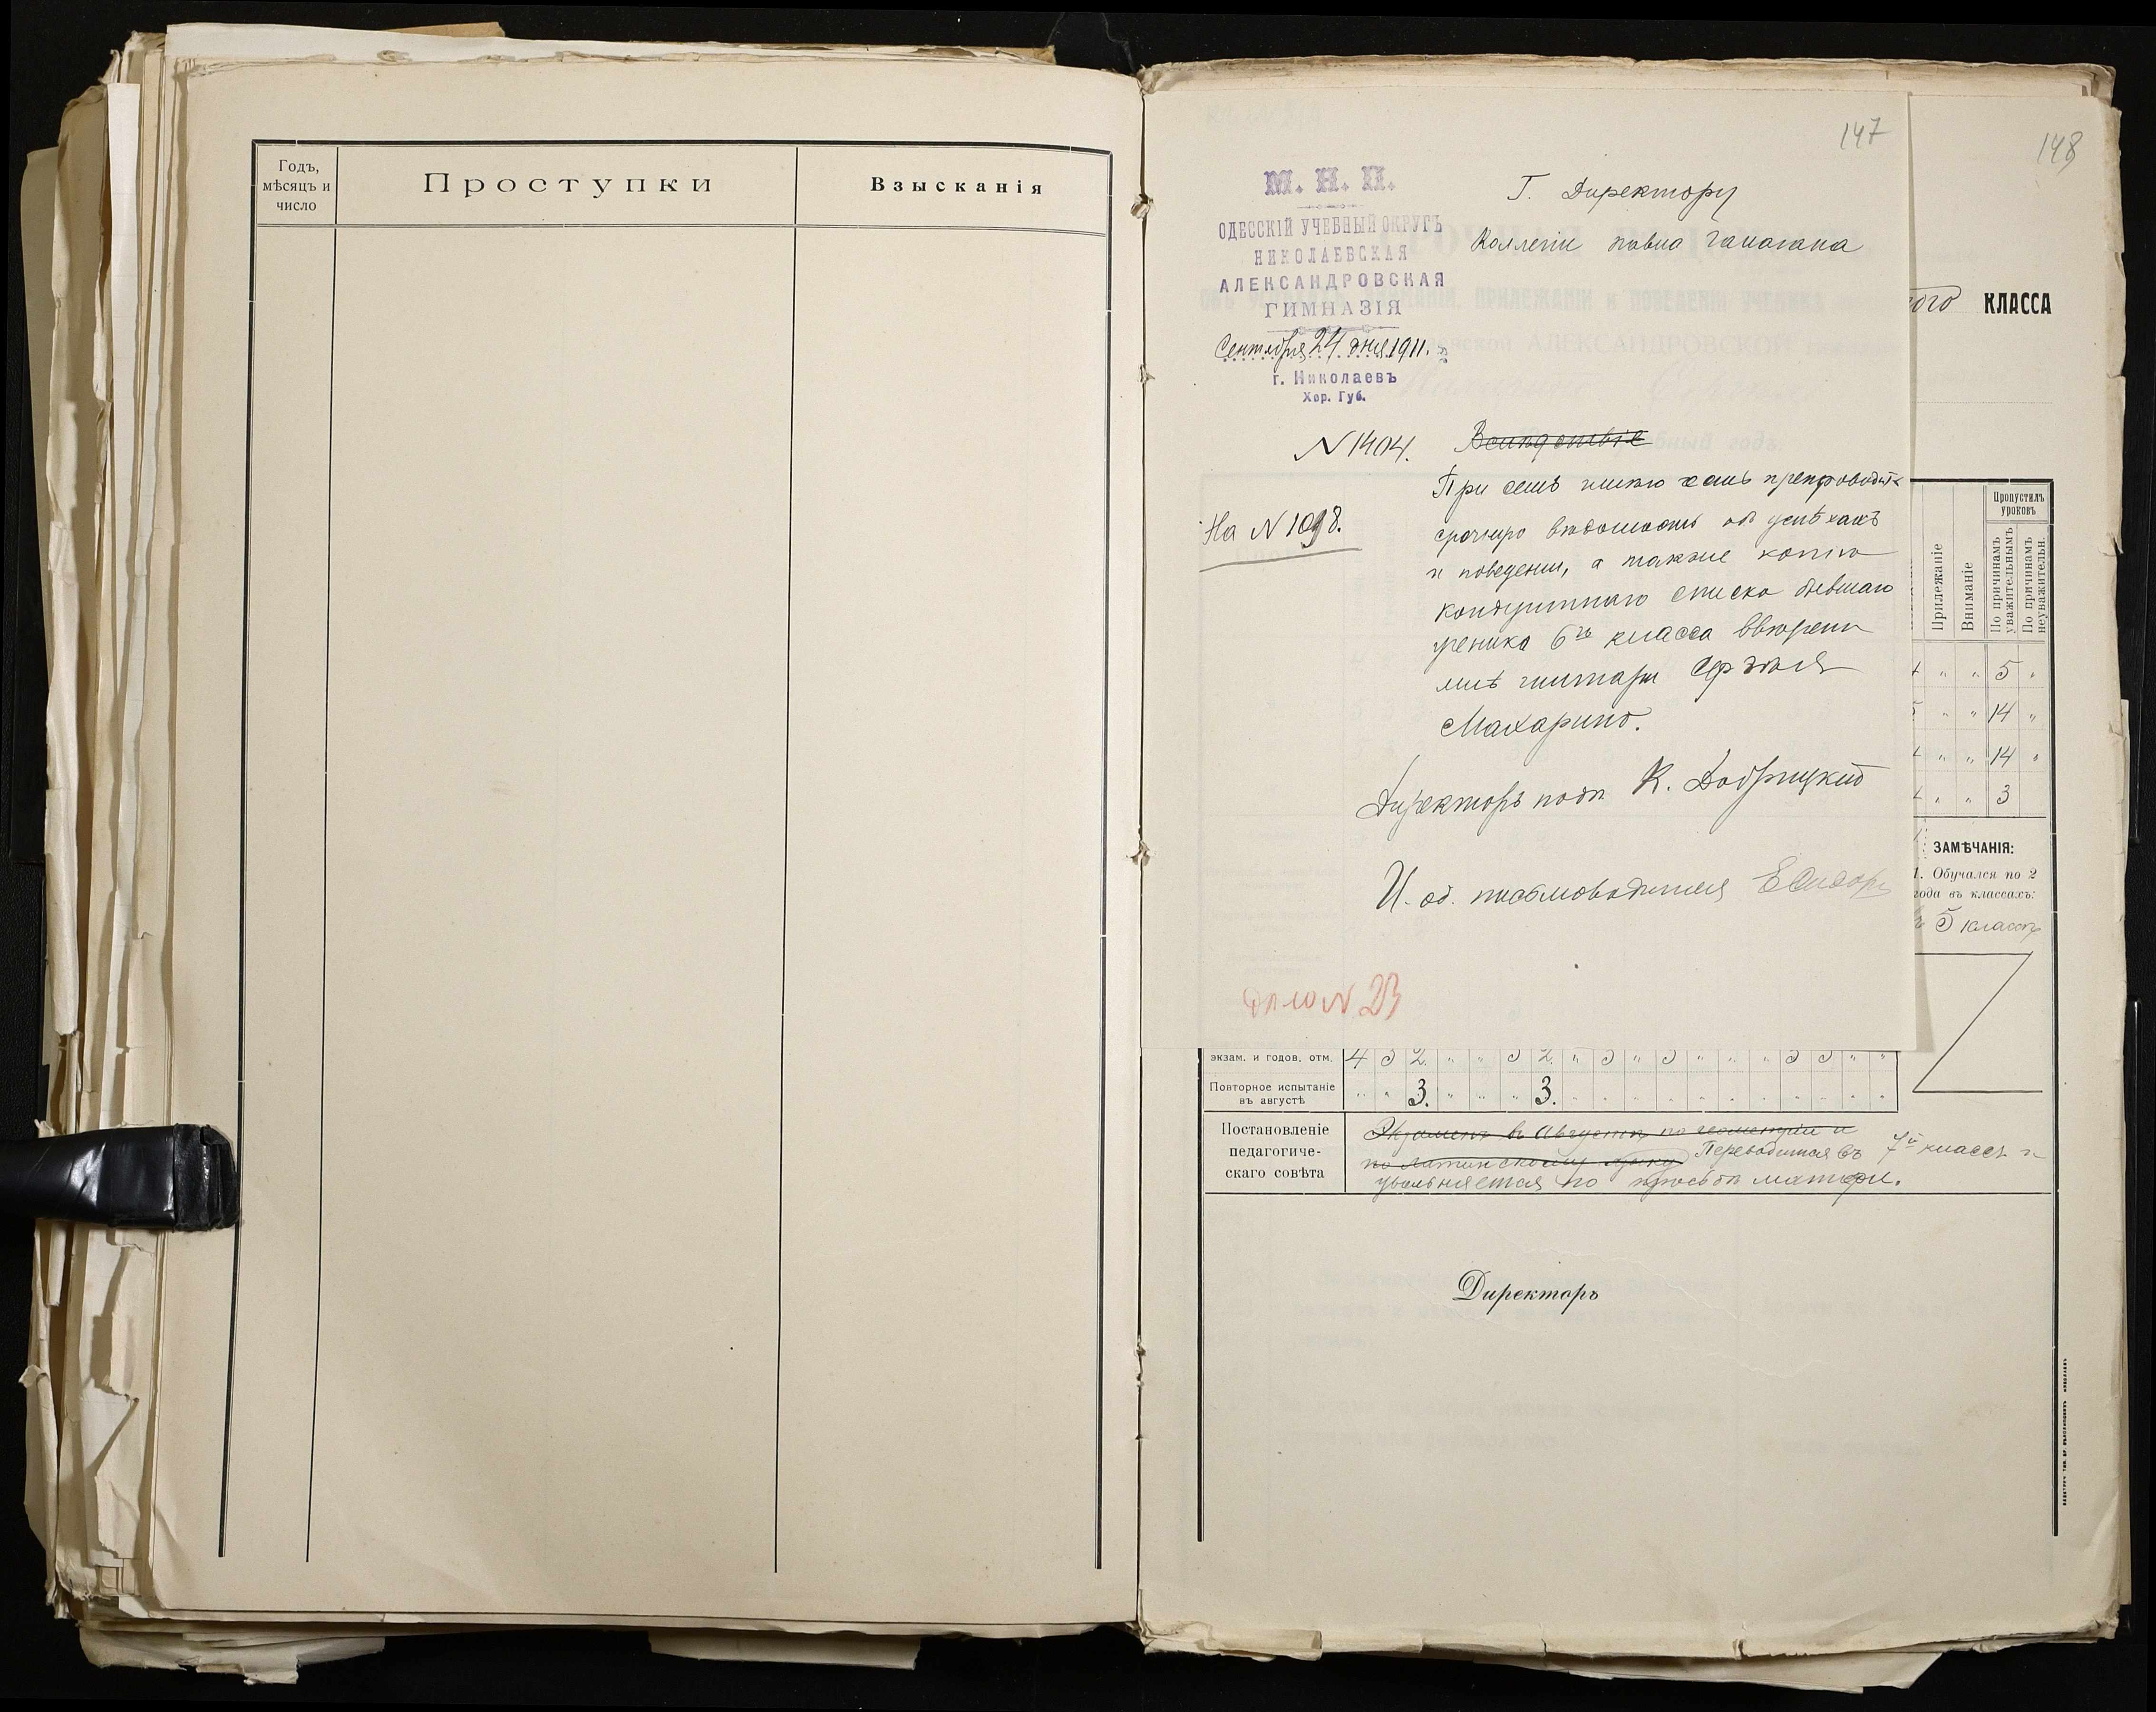 Годъ,
мѣсяцъ и
число
Проступки
Взысканія
147
148
М. Н. П.
ОДЕССКІЙ УЧЕБНЫЙ ОКРУГЪ
НИКОЛАЕВСКАЯ
АЛЕКСАНДРОВСКАЯ
ГИМНАЗІЯ
Сентября 24 дня 1911.
г. Николаевъ
Хер. Губ.
N 1404.
На N 1098.
Г. Директору
Коллегіи Павла Галагана
Вслѣдствіе
При семъ имѣю честь препроводить
срочную вѣдомость объ успѣхахъ
и поведеніи, а также копію
кондуитнаго списка бывшаго
ученика 6го класса ввѣренной
мнѣ гимназіи
Махарина.
Директоръ подп. К. Добрицкій
И. об. письмоводителя
Дѣло N 23
ого КЛАССА
Прилежаніе
Вниманіе
Пропустилъ
уроковъ
По причинамъ
уважительнымъ
По причинамъ
неуважительн.
4 " " 5 "
5 " " 14 "
4 " " 14 "
4 " " 3
ЗАМѢЧАНІЯ:
1. Обучался по 2
года въ классахъ:
5 классѣ
экзам. и годов. отм. 4 3 2 " " 3 2 " 3 " 3 " " " 3 3 " "
Повторное испытаніе
въ августѣ
3. 3.
Постановленіе
педагогиче-
скаго совѣта
Экзаменъ въ Августѣ по геометріи и
по латинскому языку Переводится въ 7й классъ и
увольняется по просьбѣ матери.
Директоръ